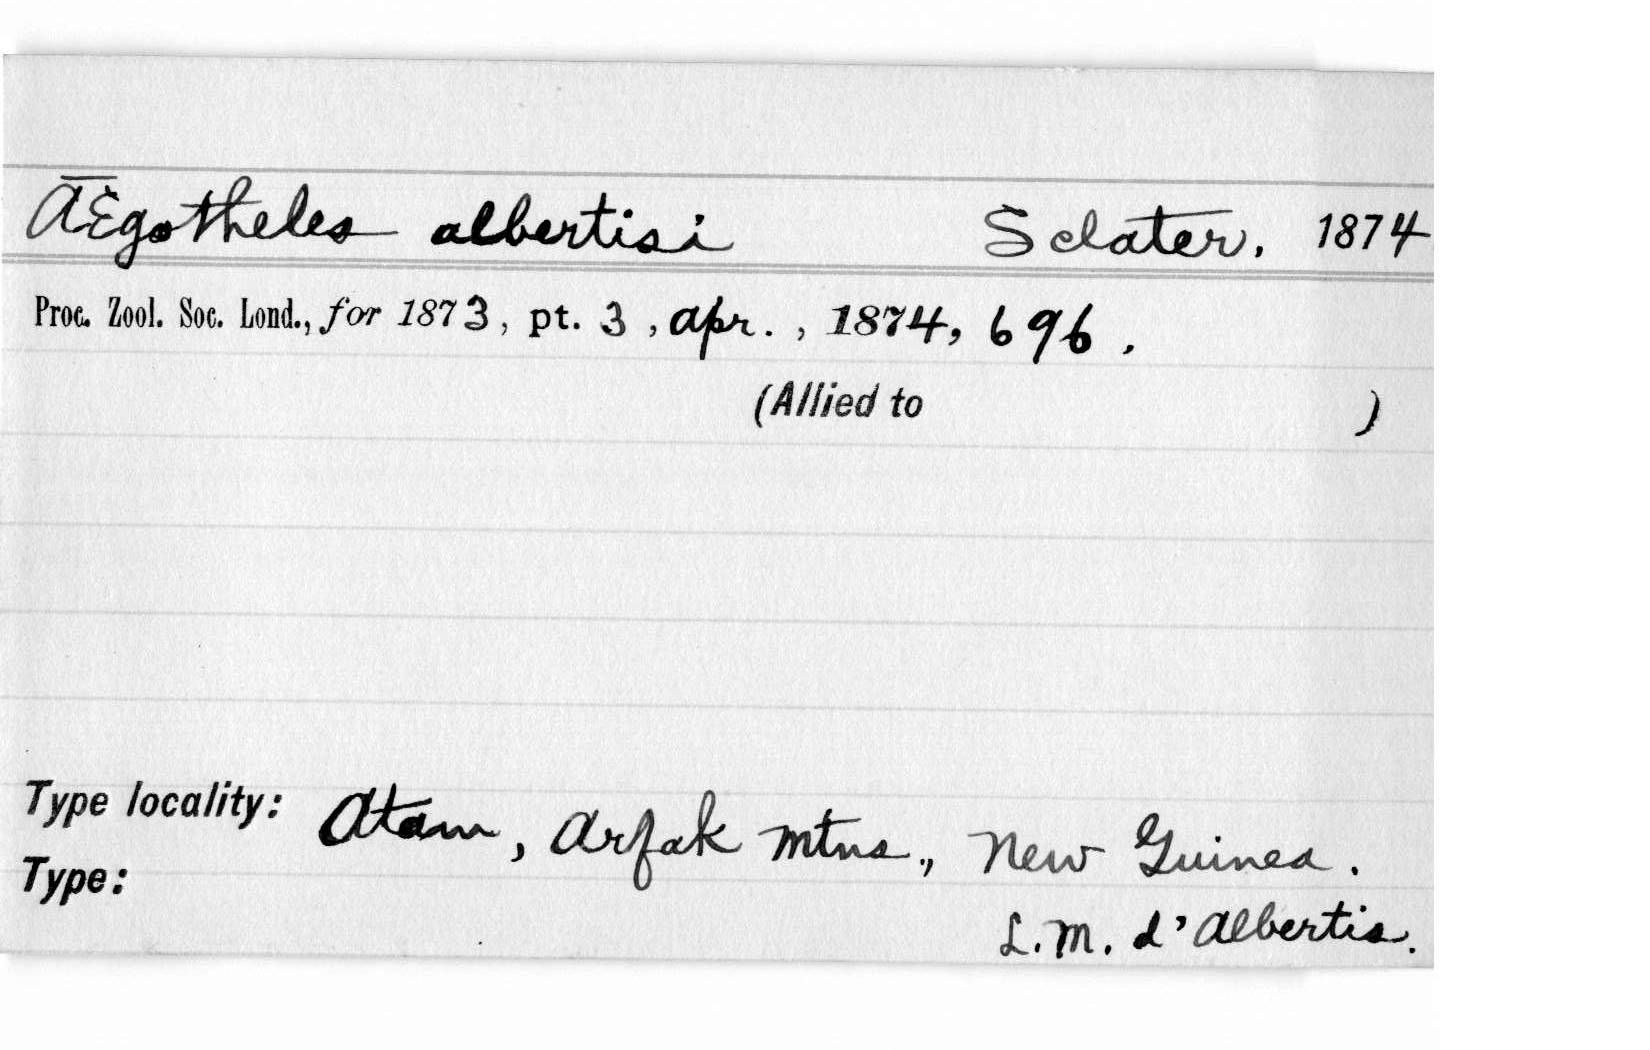 Ægotheles albertisi Sclater. 1874
Proc. Zool. Soc. Lond., for 1873, pt. 3, Apr., 1874, 696.
(Allied to )
Type locality: Atam, Arfak Mtns., New Guinea.
Type:
L. M. d'Albertis.